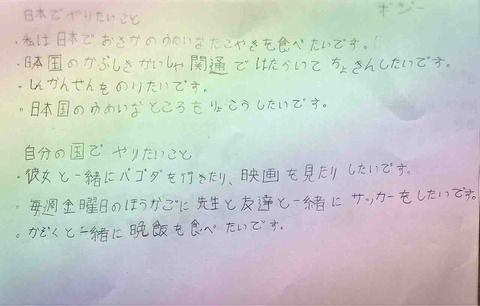 ボジー
日本でやりたいこと
・私は日本でおさかのゆめいなたこやきを食べたいです。
・日本国のかぶしきかいしゃ関通ではたらいてちょきんしたいです。
・しんかんせんをのりたいです。
・日本国のゆめいなところをりょこうしたいです。
自分の国でやりたいこと
・彼女と一緒にパゴダを行きたり、映画を見たりしたいです。
・毎週金曜日のほうかごに先生と友達と一緒にサッカーをしたいです。
・かぞくと一緒に晩飯を食べたいです.